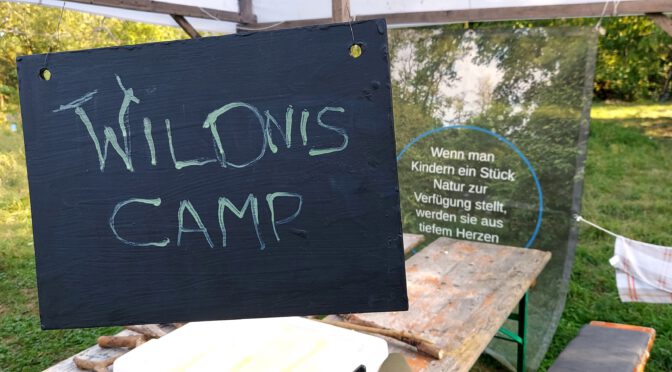 WILDNIS
CAMP
Wenn man
Kindern ein Stück
Natur zur
Verfügung stellt,
werden sie aus
tiefem Herzen